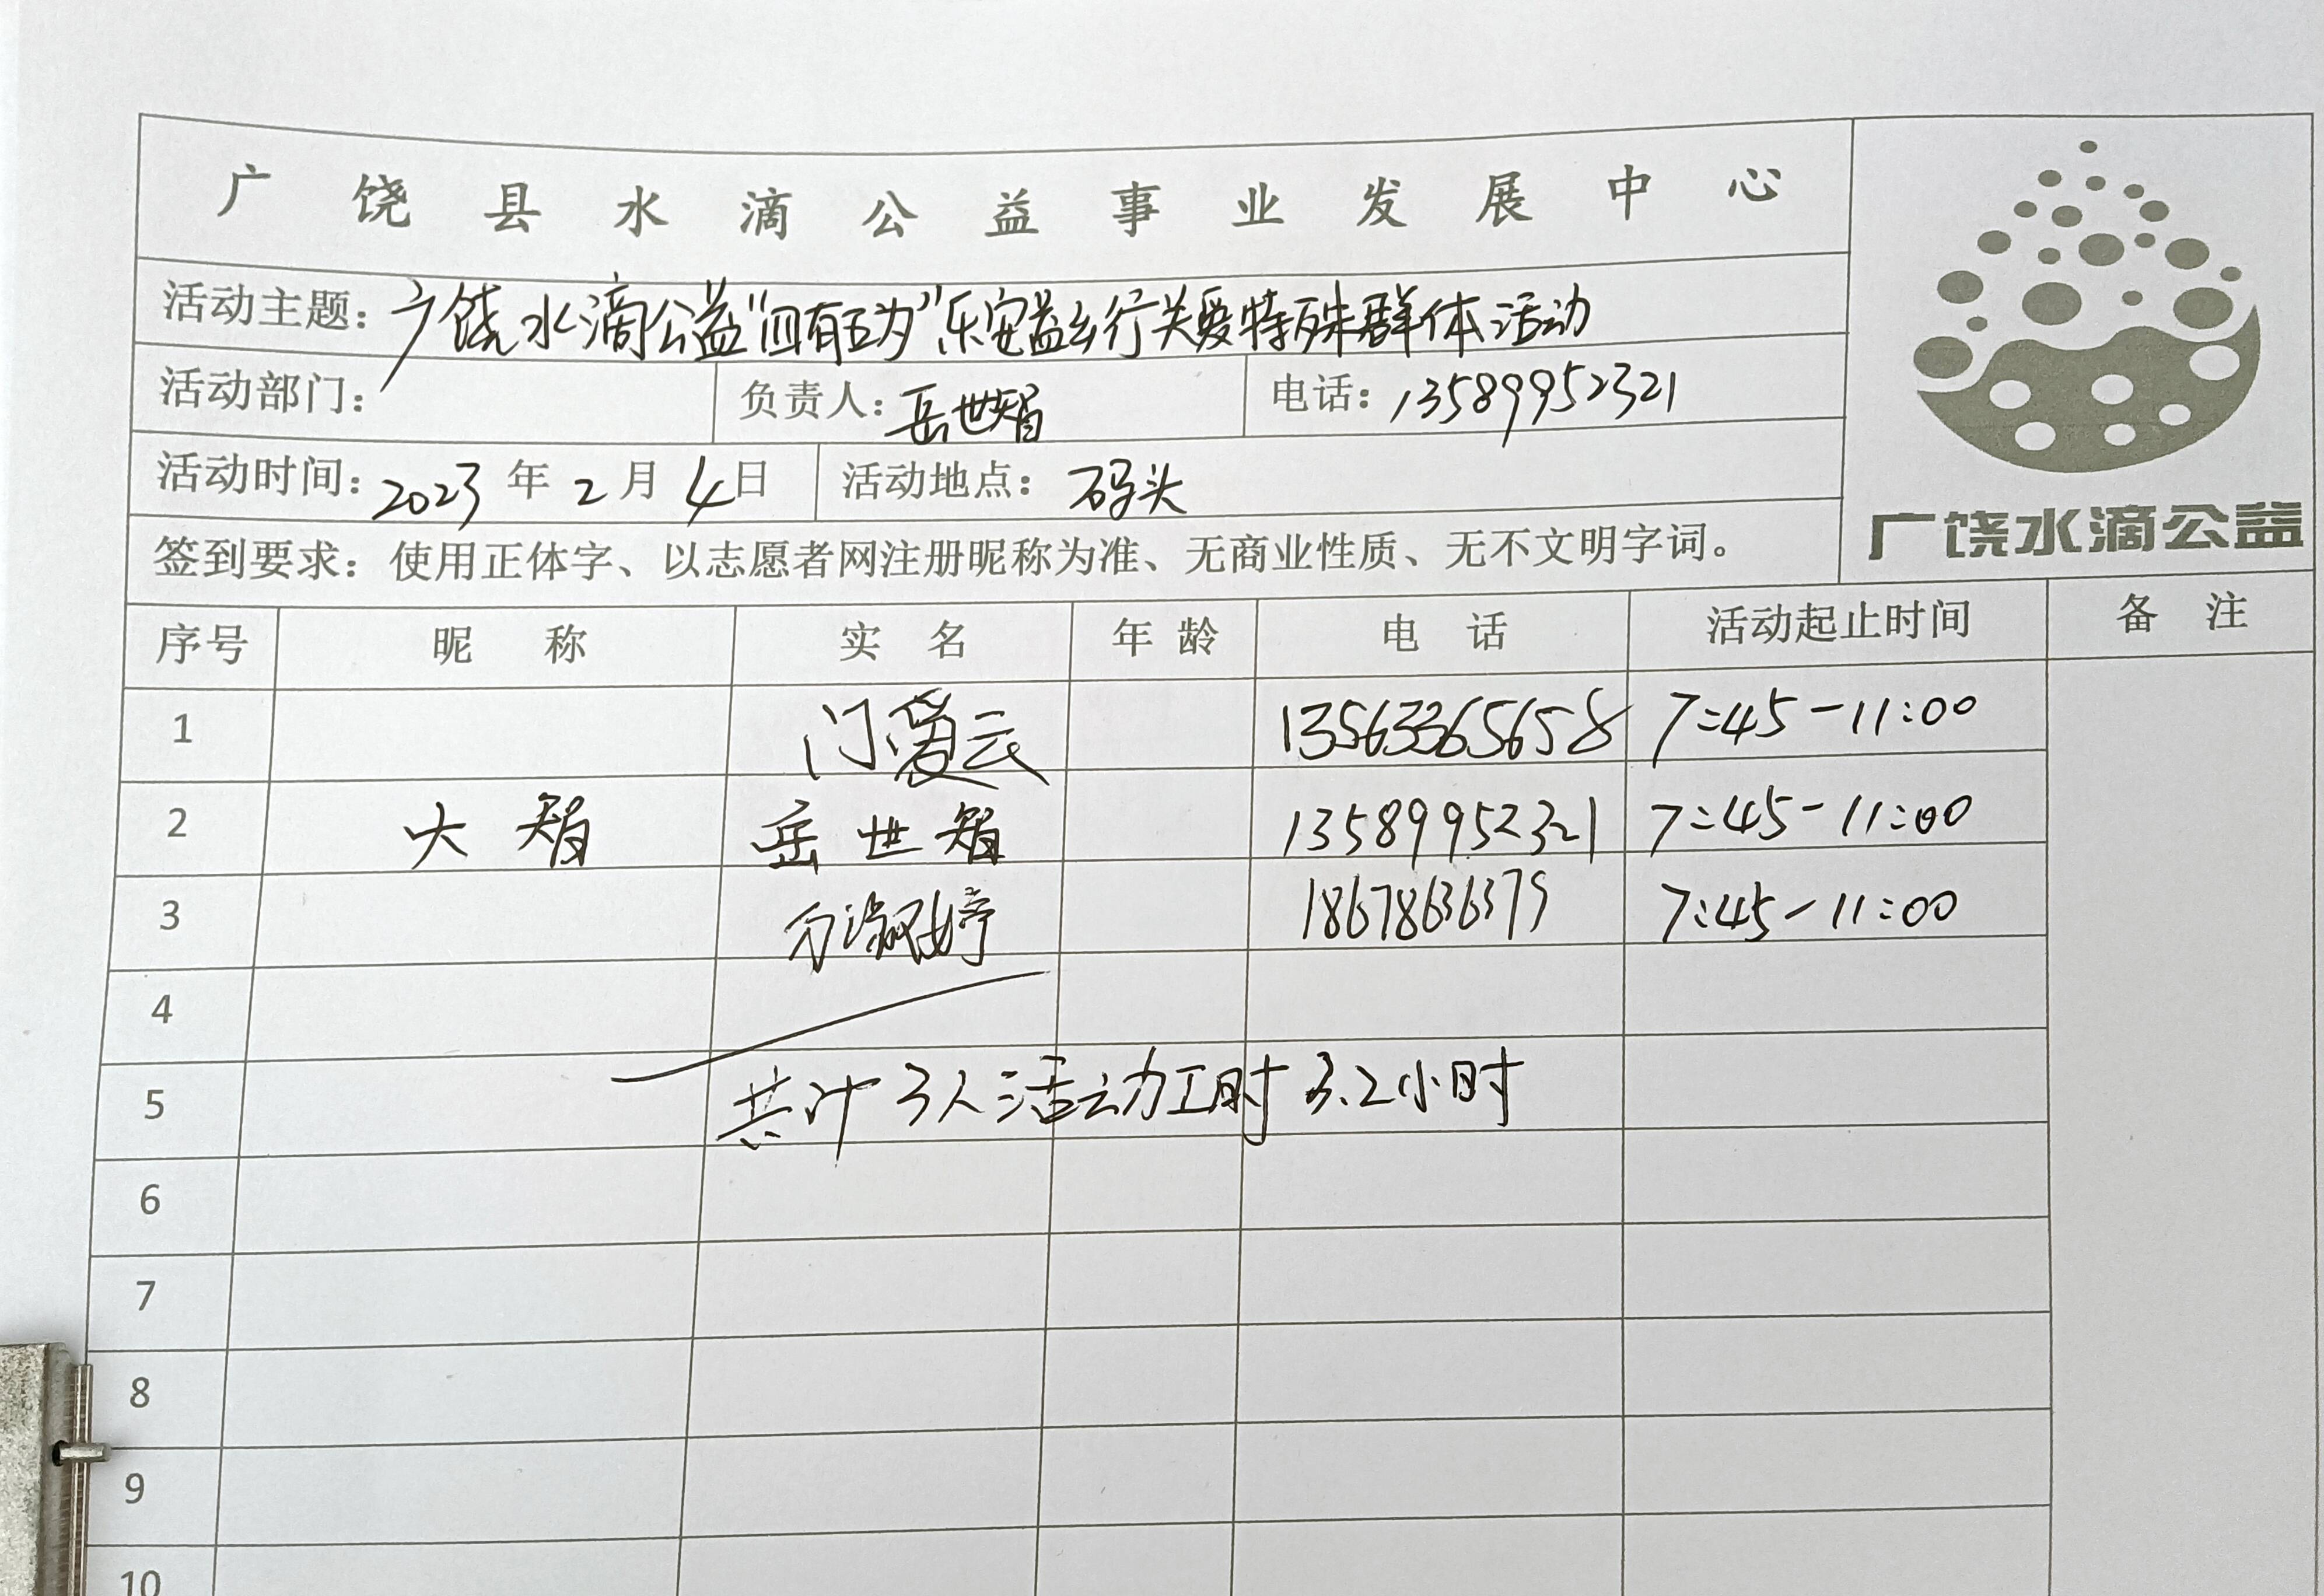 广饶县水滴公益事业发展中心
活动主题：广饶水滴公益“四有五为”乐安益乡行关爱特殊群体活动
活动部门： 负责人：岳世智 电话：13589952321
活动时间：2023年2月4日 活动地点：码头
广饶水滴公益
签到要求：使用正体字、以志愿者网注册昵称为准、无商业性质、无不文明字词。
序号 昵称 实名 年龄 电话 活动起止时间 备注
1 门爱云 13563365658 7:45-11:00
2 大智 岳世智 13589952321 7:45-11:00
3 淑婷 18678636379 7:45-11:00
4
5 共计3人活动工时3.2小时
6
7
8
9
10